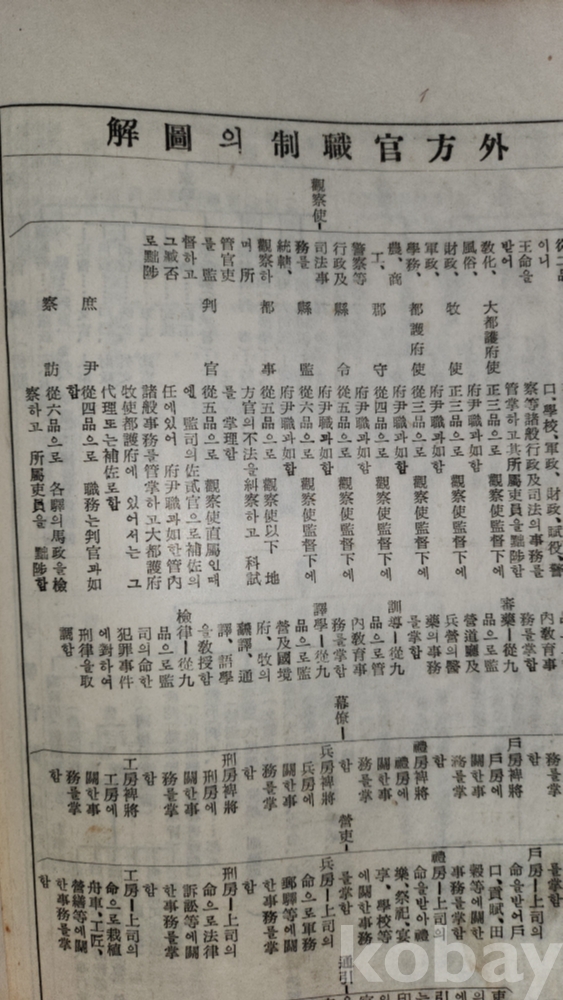 外方官職制의圖解
觀察使
從二品
이니
王命을
받어
敎化、
風俗、
財政、
軍政、
學務、
農、商
工、
警察等
行政及
司法事
務를
統轄、
觀察하
며 所
管官吏
를 監
督하고
그 臧否
로 黜陟
口、學校、軍政、財政、賦役、警
察等諸般行政及司法의事務를
管掌하고其所屬吏員을黜陟함
大都護府使
正三品으로 觀察使監督下에
府尹職과如함
牧使
正三品으로 觀察使監督下에
府尹職과如함
都護府使
從三品으로 觀察使監督下에
府尹職과如함
郡守
從四品으로 觀察使監督下에
府尹職과如함
縣令
從五品으로 觀察使監督下에
府尹職과如함
縣監
從六品으로 觀察使監督下에
府尹職과如함
都事
從五品으로 觀察使以下 地
方官의不法을糾察하고 科試
를 掌理함
判官
從五品으로 觀察使直屬인때
엔 監司의佐貳官으로補佐의
任에있어 府尹職과如한管內
諸般事務를管掌하고大都護府
牧使都護府에 있어서는 그
代理또는補佐도함
庶尹
從四品으로 職務는判官과如
함
察訪
從六品으로 各驛의馬政을檢
察하고 所屬吏員을 黜陟함
內敎育事
務를掌함
審藥ー從九
品으로監
營道廳及
兵營의醫
藥의事務
를掌함
訓導ー從九
品으로管
內敎育事
務를掌함
譯學ー從九
品으로監
營及國境
府、牧의
飜譯、通
譯、語學
을敎授함
檢律ー從九
品으로監
司의命한
犯罪事件
에對하여
刑律을取
調함
幕僚ー
務를掌
함
戶房裨將
戶房에
關한事
務를掌
함
禮房裨將
禮房에
關한事
務를掌
함
兵房裨將
兵房에
關한事
務를掌
함
刑房裨將
刑房에
關한事
務를掌
함
工房裨將
工房에
關한事
務를掌
함
營吏ー
務를掌
함
戶房ー上司의
命을받어戶
口、貢賦、田
穀等에關한
事務를掌함
禮房ー上司의
命을받아禮
樂、祭祀、宴
享、學校等
에關한事務
를掌함
兵房ー上司의
命으로軍務
郵驛等에關
한事務를掌
함
刑房ー上司의
命으로法律
訴訟等에關
한事務를掌
함
工房ー上司의
命으로栽植
舟車、工匠、
營繕等에關
한事務를掌
함
通引ー
kobay